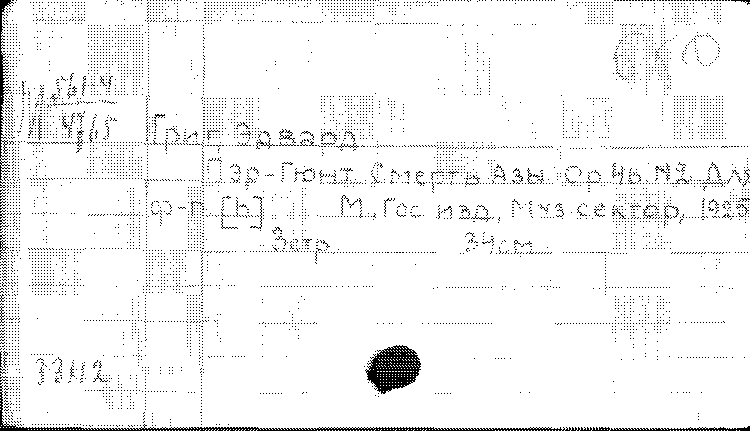 561-4
4765
Григ, Эдвард
Пэр-Гюнт. Смерть Азы. Ор 46 №2 Для
ф-п [h] М., Гос изд, Муз сектор, 1925
3 стр 34см